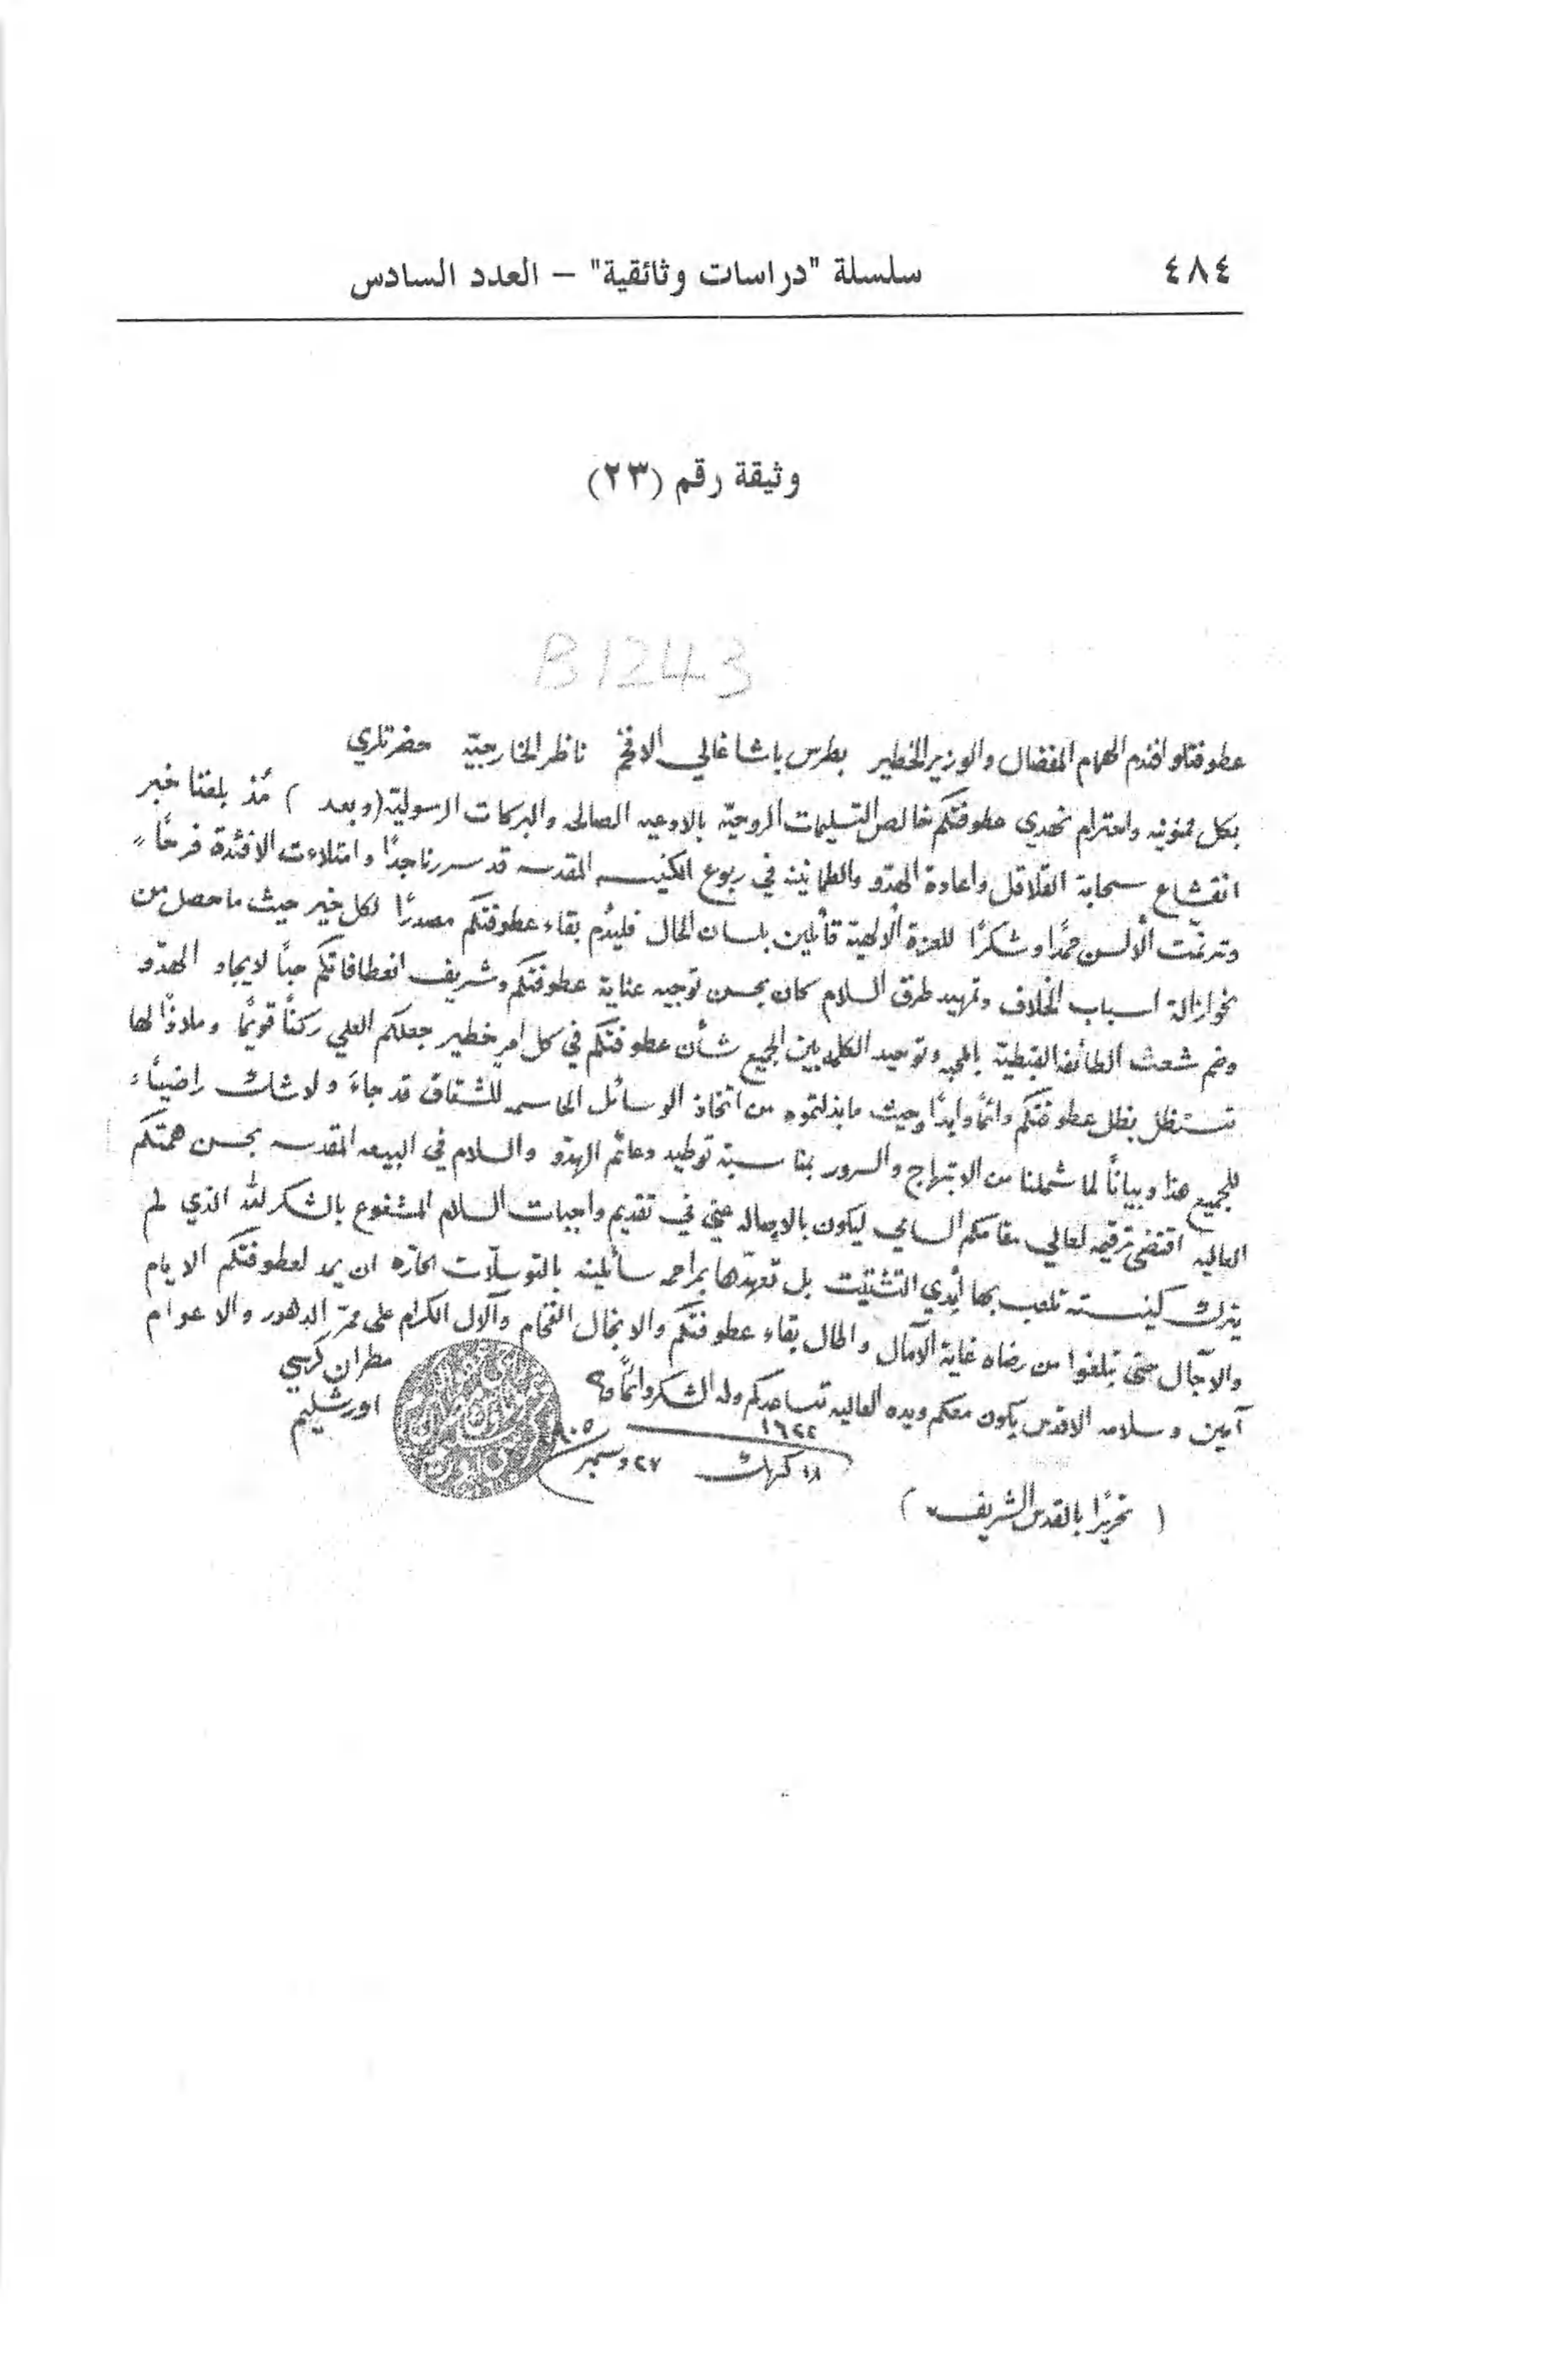 ٤٨٤
سلسلة "دراسات وثائقية" – العدد السادس
وثيقة رقم (٢٣)
B1243
عطوفتلو افندم الهمام المفضال والوزير الخطير بطرس باشا غالي الافخم ناظر الخارجيّة حضرتلري
بكل ممنونيه واحترام نهدي عطوفتكم خالص التسليمات الروحيّة بالادعيه الصالحه والبركات الرسوليّة (وبعد) مُذ بلغنا خبر
انقشاع سحابة القلاقل واعادة الهدّو والطمانينه في ربوع الكنيسه المقدسه قد سررنا جدًا وامتلاءت الافئدة فرحًا
وترنّمت الألسن حمدًا وشكرًا للعزة الألهيّة قائلين بلسان الحال فليدُم بقاء عطوفتكم مصدرًا لكل خير حيث ما حصل من
نحو ازالة اسباب الخلاف وتمهيد طرق السلام كان بحسن توجيه عناية عطوفتكم وشريف انعطافاتكم حبًا لايجاد الهدّو
وضم شعث الطائفة القبطيّة بالمحبه وتوحيد الكلمه بين الجميع شأن عطوفتكم في كل امرٍ خطير جعلكم العلي ركنًا قويمًا وملاذًا لها
تستظل بظل عطوفتكم دائمًا وابدًا وحيث ما بذلتموه من اتخاذ الوسائل الحاسمه للشقاق قد جاءَ ولا شك راضيًا
للجميع هذا وبيانًا لما شملنا من الابتهاج والسرور بمناسبة توطيد دعائم الهدّو والسلام في البيعه المقدسه بحسن همتكم
العاليه اقتضى ترقيمه لعالي مقامكم السامي ليكون بالاصاله عني في تقديم واجبات السلام المشفوع بالشكر لله الذي لم
يترك كنيسته تلعب بها أيدي التشتيّت بل تعهدّها بمراحمه سائلينه بالتوسلّات الحارّه ان يمد لعطوفتكم الايام
والآجال حتى تبلغوا من رضاه غاية الآمال والحال بقاء عطوفتكم والانجال الفخام والآل الكرام على ممرّ الدهور والاعوام
آمين وسلامه الاقدس يكون معكم ويده العاليه تساعدكم وله الشكر دائمًا
١٦٢٢
١٨ كيهك ٢٧ دسمبر
مطران كرسي
اورشليم
( تحريرًا بالقدس الشريف )